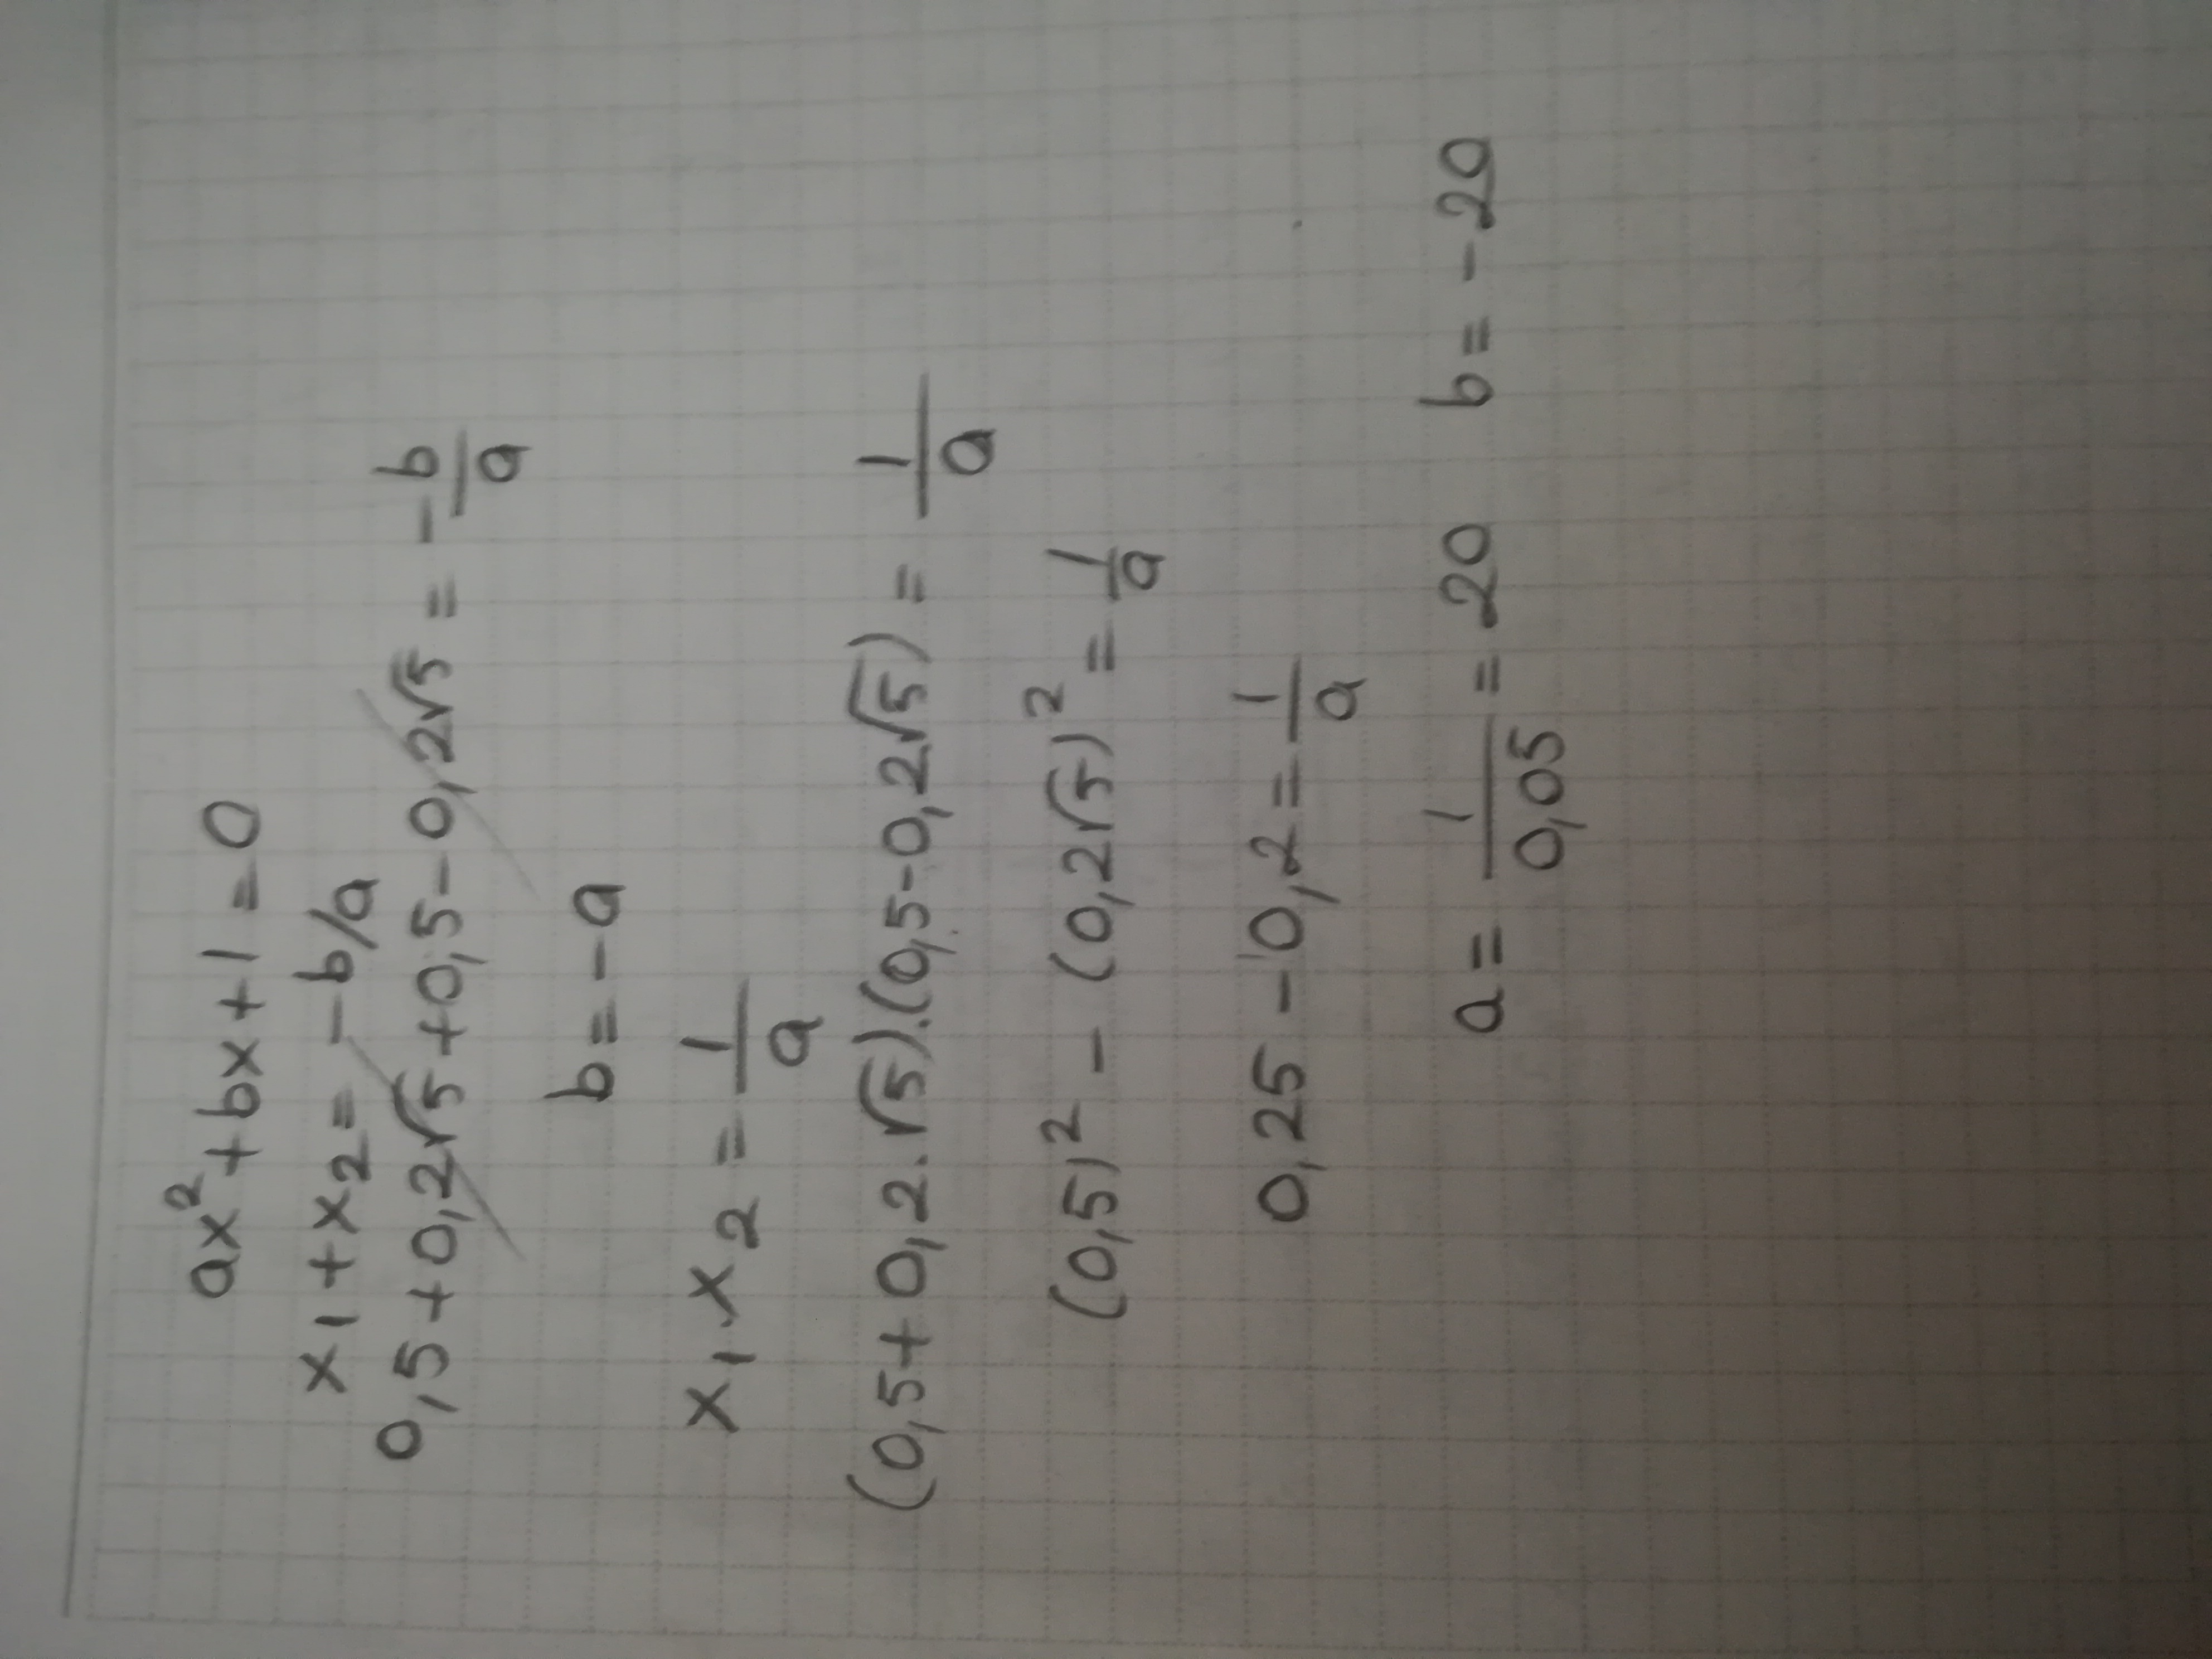 ax² + bx + 1 = 0
x1 + x2 = -b/a
0,5 + 0,2√5 + 0,5 - 0,2√5 = -b/a
b = -a
x1 . x2 = 1/a
(0,5 + 0,2 . √5) . (0,5 - 0,2√5) = 1/a
(0,5)² - (0,2√5)² = 1/a
0,25 - 0,2 = 1/a
a = 1/0,05 = 20 b = -20